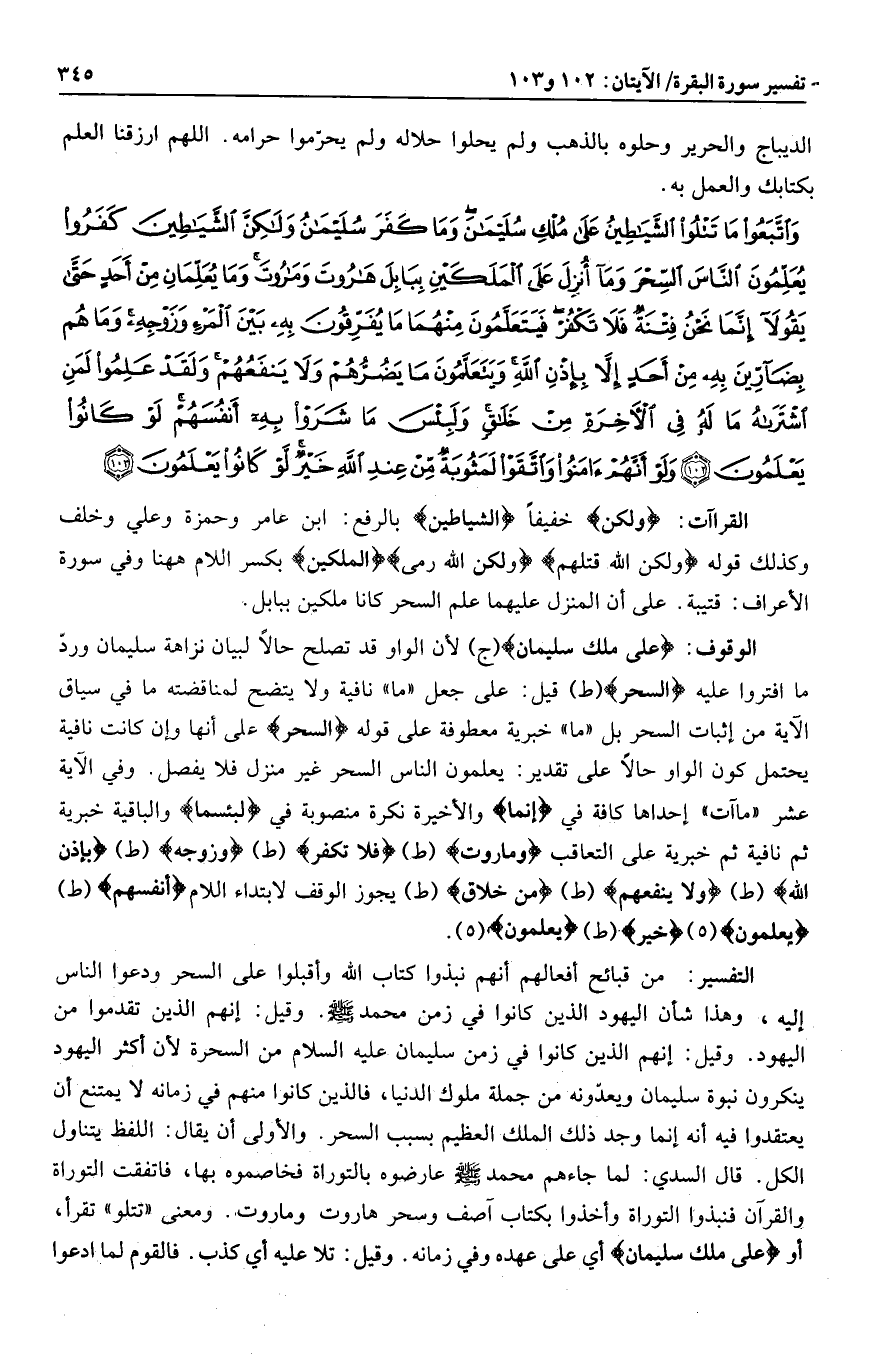 - تفسير سورة البقرة/ الآيتان: ١٠٢ و١٠٣ ٣٤٥
الديباج والحرير وحلوه بالذهب ولم يحلوا حلاله ولم يحرّموا حرامه. اللهم ارزقنا العلم
بكتابك والعمل به.
وَٱتَّبَعُوا۟ مَا تَتْلُوا۟ ٱلشَّيَـٰطِينُ عَلَىٰ مُلْكِ سُلَيْمَـٰنَ ۖ وَمَا كَفَرَ سُلَيْمَـٰنُ وَلَـٰكِنَّ ٱلشَّيَـٰطِينَ كَفَرُوا۟
يُعَلِّمُونَ ٱلنَّاسَ ٱلسِّحْرَ وَمَآ أُنزِلَ عَلَى ٱلْمَلَكَيْنِ بِبَابِلَ هَـٰرُوتَ وَمَـٰرُوتَ ۚ وَمَا يُعَلِّمَانِ مِنْ أَحَدٍ حَتَّىٰ
يَقُولَآ إِنَّمَا نَحْنُ فِتْنَةٌ فَلَا تَكْفُرْ ۖ فَيَتَعَلَّمُونَ مِنْهُمَا مَا يُفَرِّقُونَ بِهِۦ بَيْنَ ٱلْمَرْءِ وَزَوْجِهِۦ ۚ وَمَا هُم
بِضَآرِّينَ بِهِۦ مِنْ أَحَدٍ إِلَّا بِإِذْنِ ٱللَّهِ ۚ وَيَتَعَلَّمُونَ مَا يَضُرُّهُمْ وَلَا يَنفَعُهُمْ ۚ وَلَقَدْ عَلِمُوا۟ لَمَنِ
ٱشْتَرَىٰهُ مَا لَهُۥ فِى ٱلْـَٔاخِرَةِ مِنْ خَلَـٰقٍ ۚ وَلَبِئْسَ مَا شَرَوْا۟ بِهِۦٓ أَنفُسَهُمْ ۚ لَوْ كَانُوا۟
يَعْلَمُونَ ﴿١٠٢﴾ وَلَوْ أَنَّهُمْ ءَامَنُوا۟ وَٱتَّقَوْا۟ لَمَثُوبَةٌ مِّنْ عِندِ ٱللَّهِ خَيْرٌ ۖ لَّوْ كَانُوا۟ يَعْلَمُونَ ﴿١٠٣﴾
القراآت: ﴿ولكن﴾ خفيفاً ﴿الشياطين﴾ بالرفع: ابن عامر وحمزة وعلي وخلف
وكذلك قوله ﴿ولكن الله قتلهم﴾ ﴿ولكن الله رمى﴾﴿الملكين﴾ بكسر اللام ههنا وفي سورة
الأعراف: قتيبة. على أن المنزل عليهما علم السحر كانا ملكين ببابل.
الوقوف: ﴿على ملك سليمان﴾(ج) لأن الواو قد تصلح حالاً لبيان نزاهة سليمان وردّ
ما افتروا عليه ﴿السحر﴾(ط) قيل: على جعل «ما» نافية ولا يتضح لمناقضته ما في سياق
الآية من إثبات السحر بل «ما» خبرية معطوفة على قوله ﴿السحر﴾ على أنها وإن كانت نافية
يحتمل كون الواو حالاً على تقدير: يعلمون الناس السحر غير منزل فلا يفصل. وفي الآية
عشر «ماآت» إحداها كافة في ﴿إنما﴾ والأخيرة نكرة منصوبة في ﴿لبئسما﴾ والباقية خبرية
ثم نافية ثم خبرية على التعاقب ﴿وماروت﴾ (ط) ﴿فلا تكفر﴾ (ط) ﴿وزوجه﴾ (ط) ﴿بإذن
الله﴾ (ط) ﴿ولا ينفعهم﴾ (ط) ﴿من خلاق﴾ (ط) يجوز الوقف لابتداء اللام﴿أنفسهم﴾ (ط)
﴿يعلمون﴾(٥) ﴿خير﴾(ط) ﴿يعلمون﴾(٥).
التفسير: من قبائح أفعالهم أنهم نبذوا كتاب الله وأقبلوا على السحر ودعوا الناس
إليه، وهذا شأن اليهود الذين كانوا في زمن محمد ﷺ. وقيل: إنهم الذين تقدموا من
اليهود. وقيل: إنهم الذين كانوا في زمن سليمان عليه السلام من السحرة لأن أكثر اليهود
ينكرون نبوة سليمان ويعدّونه من جملة ملوك الدنيا، فالذين كانوا منهم في زمانه لا يمتنع أن
يعتقدوا فيه أنه إنما وجد ذلك الملك العظيم بسبب السحر. والأولى أن يقال: اللفظ يتناول
الكل. قال السدي: لما جاءهم محمد ﷺ عارضوه بالتوراة فخاصموه بها، فاتفقت التوراة
والقرآن فنبذوا التوراة وأخذوا بكتاب آصف وسحر هاروت وماروت. ومعنى «تتلو» تقرأ،
أو ﴿على ملك سليمان﴾ أي على عهده وفي زمانه. وقيل: تلا عليه أي كذب. فالقوم لما ادعوا